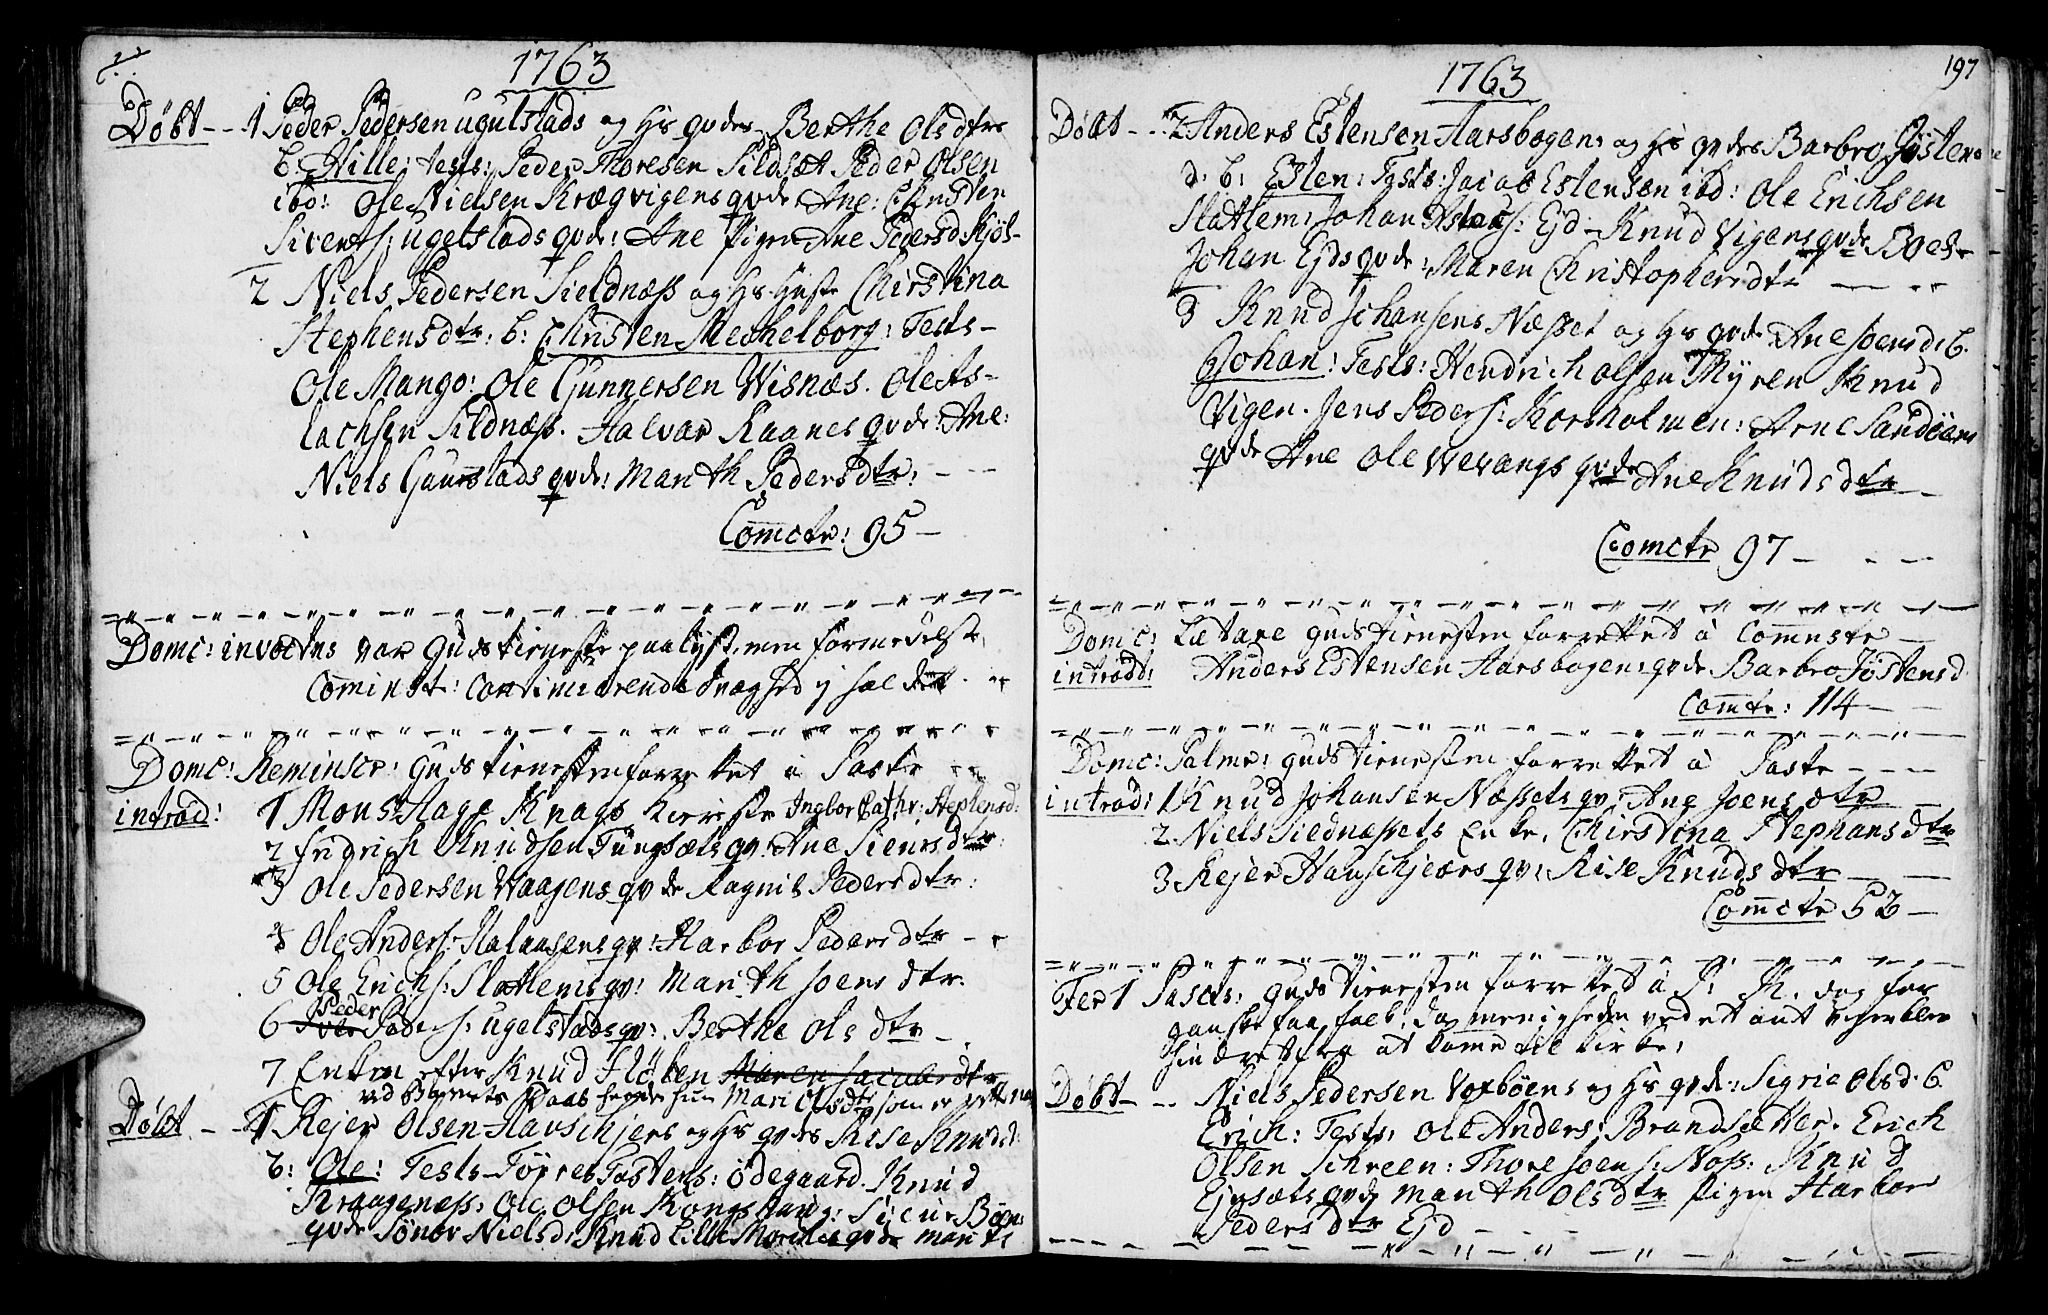 1763
Døbt - - 1 Peder Pedersen ugulstads og Hs qvdes Berthe Olsdtrs
b: Hille: tests: Peder Thoresen Sildsæt Peder Olsen
ibd: Ole Nielsen Krægvigens qvde Ane: Christen
Siverts: ugelstads qvde: Ane Pigen Ane Pedersd
2 Niels Pedersen Sieldnæss og Hs Hustr Chirstina
Stephensdtr: b: Christen Mechelborg: Tests-
Ole Mango: Ole Gunnersen Wisnæs. Ole As-
lachsen Sildnæss. Halvar Raanes qvde: Ane:
Niels Gaustads qvde: Marith Pedersdtr: - - -
Comcte: 95 -
Domc: invoctus var Gudstieneste paalyst, men formedelst
Cominst: Continuerende Svaghed ij holdet.
Domc: Reminsce: Gudstienesten forrettet i Paste
introd: 1 Mons Hage Knags Kiereste Ingbor Cathr: Stephensd:
2 Fridrich Knudsen Tungsæts qv: Ane Siursdtr:
3 Ole Pedersen Waagens qvde Ragnil Pedersdtr:
4 Ole Anders: Halaasens qv: Harbor Pedersdtr - -
5 Ole Erichs: Slatlems qv: Marith Joensdtr.
Peder
6 Peders: ugelstads qv: Berthe Olsdtr -.
7 Enken efter Knud Fløken Maren Jacobsdtr
ved Barnets Daab hun Mari Olsdtr som er rettens
Døbt - - 1 Rejer Olsen Hauschjers og Hs qvdes Rise Knudsd:
b: Ole: Tests Tøpres Tostens: Ødegaard. Knud
Kraagenæss: Ole Olsen Kongshaug: Siuur Bøen:
qvde Sønov Nielsd: Knud Lille qvde Marit
1763
197
Døbt - - 2 Anders Estensen Aarsbogen: og Hs qvdes Barbro Jøstens
d: b: Esten: Tests: Jacob Estensen ibd: Ole Erichsen
Slatlem: Johan Estens: Ejd - Knud Vigens qvde
Johan Ejds qvde: Maren Christophersdtr — - -
3 Knud Johansens Næsset og Hs qvde Ane Joensd: b.
Johan: Tests: Hendrich Olsen Myren Knud
Vigen. Jens Peders: Korsholmen: Arne Sandøens
qvde Ane Ole Wevangs qvde Ane Knudsdtr
Comcte 97 - - -
Domc: Lætare Gudstienesten forrettet à Comnste -
introd: Anders Estensen Aarsbogen: qvde Barbro Jøstensd.
Comte: 114 -
Domc: Palme: Gudstienesten forrettet à Paste - - -
introd: 1 Knud Johansen Næssets qv: Ane Joensdtr
2. Niels Siednæssets Enke, Chirstina Stephansdtr
3 Rejer Hauschjærs qv: Rise Knudsdtr - -
Comcte 52 -
Fer 1 Pasch: Gudstienesten forrettet à P: M. dog for
ganske faa folk, da menigheden ved et ont veyr blev
hindret fra at kome til Kirke:
Døbt - - Niels Pedersen Voxbøens og Hs qvde: Sigrie Olsd: b.
Erich: Tests: Ole Anders: Brandsætter. Erich
Olsen Schreen: Thore Joens: Noss: Knud
Ejesæts qvde Marith Olsdtr Pigen Harbor
Pedersdtr Ejd - - -